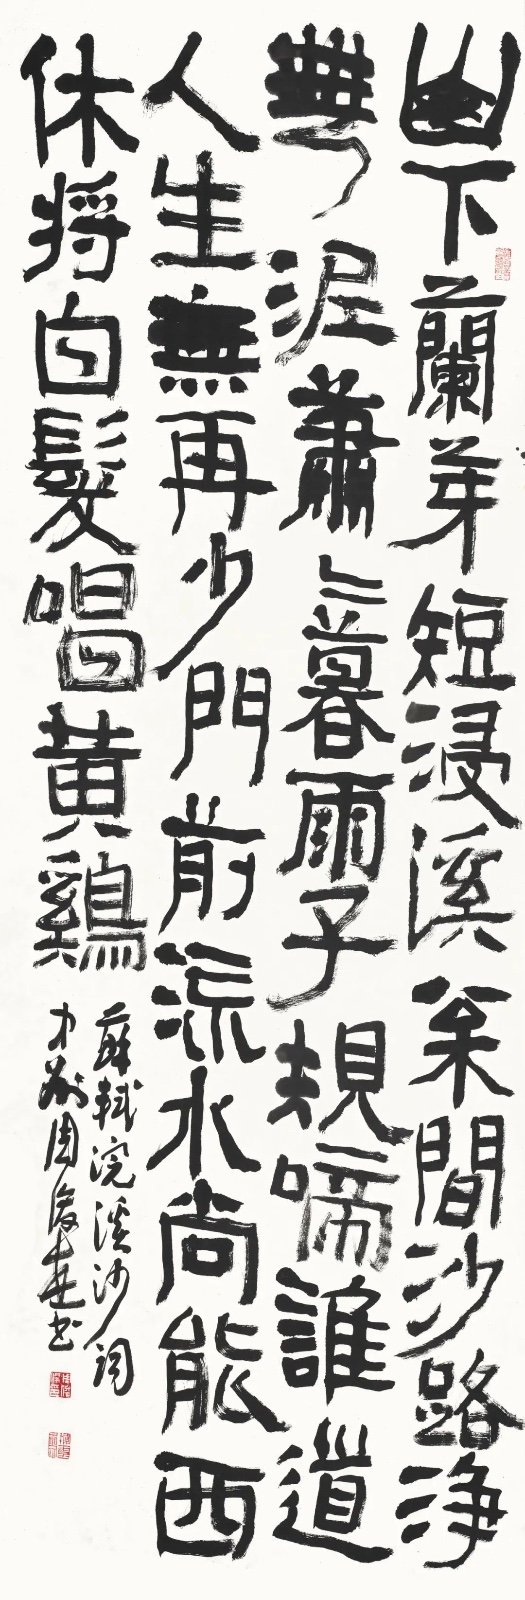 山下蘭芽短浸溪枀間沙路浄
無泥蕭〻暮雨子規啼誰道
人生無再少門前流水尚能西
休將白髮唱黄鷄
蘇軾浣溪沙詞
中州周俊杰书